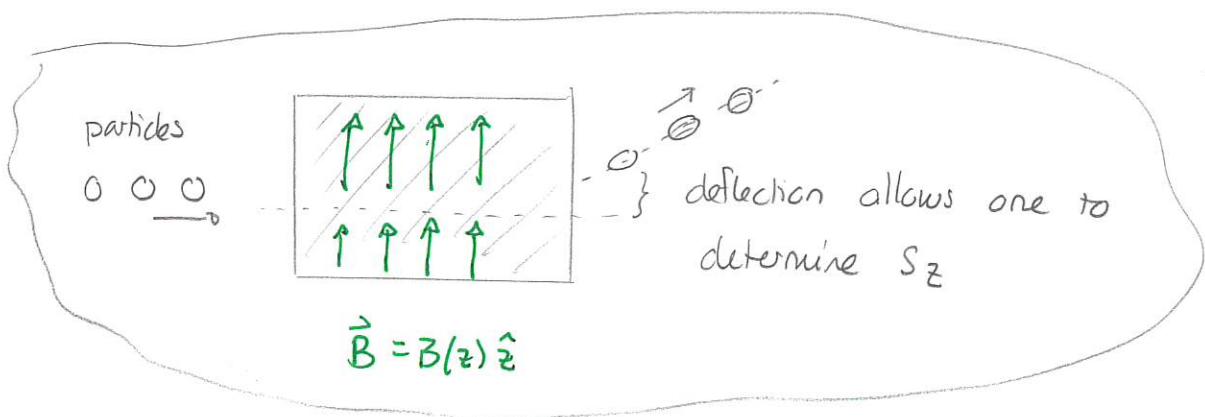 particles
deflection allows one to
determine Sz
B⃗ = B(z) ẑ